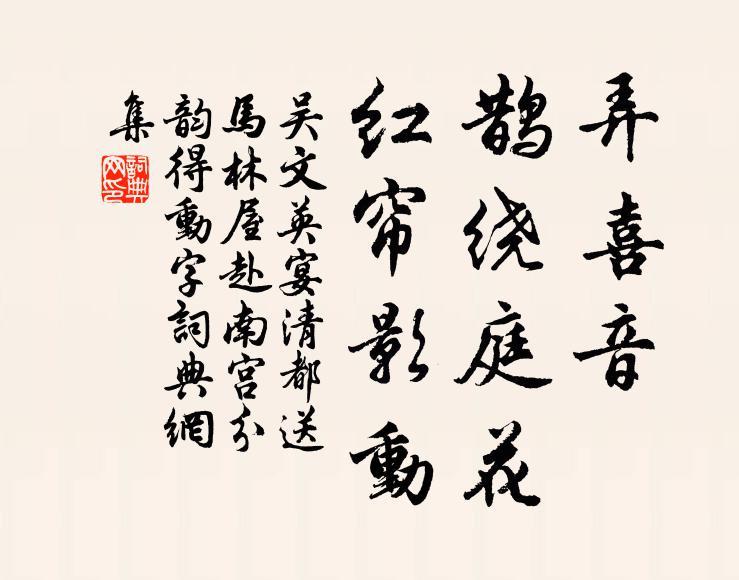 弄喜音
鹊绕庭花
红帘影動
吴文英宴清都送
馬林屋赴南宫分
韵得動字詞典網
集
詞典網印